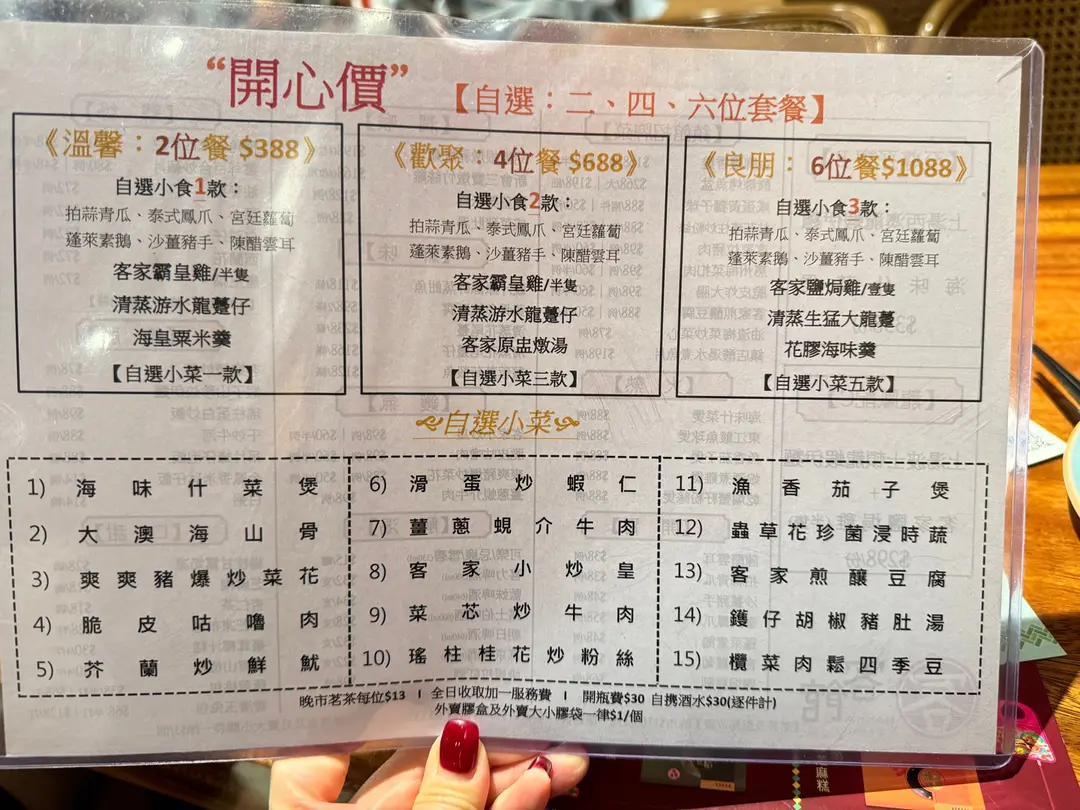 “開心價”
【自選：二、四、六位套餐】
《溫馨：2位餐 $388》
自選小食1款：
拍蒜青瓜、泰式鳳爪、宮廷蘿蔔
蓬萊素鵝、沙薑豬手、陳醋雲耳
客家霸皇雞/半隻
清蒸游水龍躉仔
海皇粟米羹
【自選小菜一款】
《歡聚：4位餐 $688》
自選小食2款：
拍蒜青瓜、泰式鳳爪、宮廷蘿蔔
蓬萊素鵝、沙薑豬手、陳醋雲耳
客家霸皇雞/半隻
清蒸游水龍躉仔
客家原盅燉湯
【自選小菜三款】
《良朋： 6位餐$1088》
自選小食3款：
拍蒜青瓜、泰式鳳爪、宮廷蘿蔔
蓬萊素鵝、沙薑豬手、陳醋雲耳
客家鹽焗雞/壹隻
清蒸生猛大龍躉
花膠海味羹
【自選小菜五款】
自選小菜
1) 海味什菜煲
2) 大澳海山骨
3) 爽爽豬爆炒菜花
4) 脆皮咕嚕肉
5) 芥蘭炒鮮魷
6) 滑蛋炒蝦仁
7) 薑蔥蜆介牛肉
8) 客家小炒皇
9) 菜芯炒牛肉
10) 瑤柱桂花炒粉絲
11) 漁香茄子煲
12) 蟲草花珍菌浸時蔬
13) 客家煎釀豆腐
14) 鑊仔胡椒豬肚湯
15) 欖菜肉鬆四季豆
晚市茗茶每位$13 | 全日收取加一服務費 | 開瓶費$30 自携酒水$30(逐件計)
外賣膠盒及外賣大小膠袋一律$1/個
麻糕